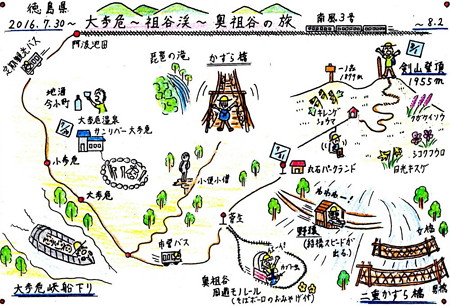 徳島県
2016.7.30~
大歩危~祖谷渓~奥祖谷の旅
南風3号
~8.2
阿波池田
定期観光バス
琵琶の滝
かずら橋
一ノ森
1879m
剣山登頂
1955m
地酒
今小町
大歩危温泉
サンリバー大歩危
キレンゲ
ショウマ
クガイソウ
シコクフウロ
日光キスゲ
小歩危
大歩危
小便小僧
丸石パークランド
わぁわぁー!
野猿
(結構スピードが
出る)
菅生
市営バス
大歩危峡船下り
奥祖谷
周遊モノレール
(そばボーロのおみやげ付)
女橋
男橋
二重かずら橋